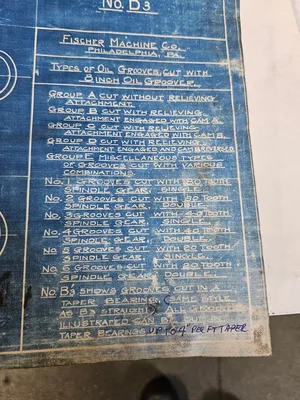 No. D3
FISCHER MACHINE CO.
PHILADELPHIA, PA.
TYPES OF OIL GROOVES CUT WITH
8 INCH OIL GROOVER.
GROUP A CUT WITHOUT RELIEVING
ATTACHMENT.
GROUP B CUT WITH RELIEVING
ATTACHMENT ENGAGED WITH CAM A.
GROUP C CUT WITH RELIEVING
ATTACHMENT ENGAGED WITH CAM B.
GROUP D CUT WITH RELIEVING
ATTACHMENT ENGAGED AND CAM B REVERSED
GROUP E MISCELLANEOUS TYPES
OF GROOVES CUT WITH VARIOUS
COMBINATIONS.
No. 1 GROOVES CUT WITH 80 TOOTH
SPINDLE GEAR, SINGLE.
No. 2 GROOVES CUT WITH 80 TOOTH
SPINDLE GEAR, DOUBLE.
No. 3 GROOVES CUT WITH 40 TOOTH
SPINDLE GEAR, SINGLE.
No. 4 GROOVES CUT WITH 40 TOOTH
SPINDLE GEAR, DOUBLE.
No. 5 GROOVES CUT WITH 20 TOOTH
SPINDLE GEAR, SINGLE.
No. 6 GROOVES CUT WITH 20 TOOTH
SPINDLE GEAR, DOUBLE.
No B3 SHOWS GROOVES CUT IN A
TAPER BEARING, SAME STYLE
AS B3 STRAIGHT. ALL GROOVES
ILLUSTRATED CAN BE CUT IN
TAPER BEARINGS UP TO 4" PER FT TAPER